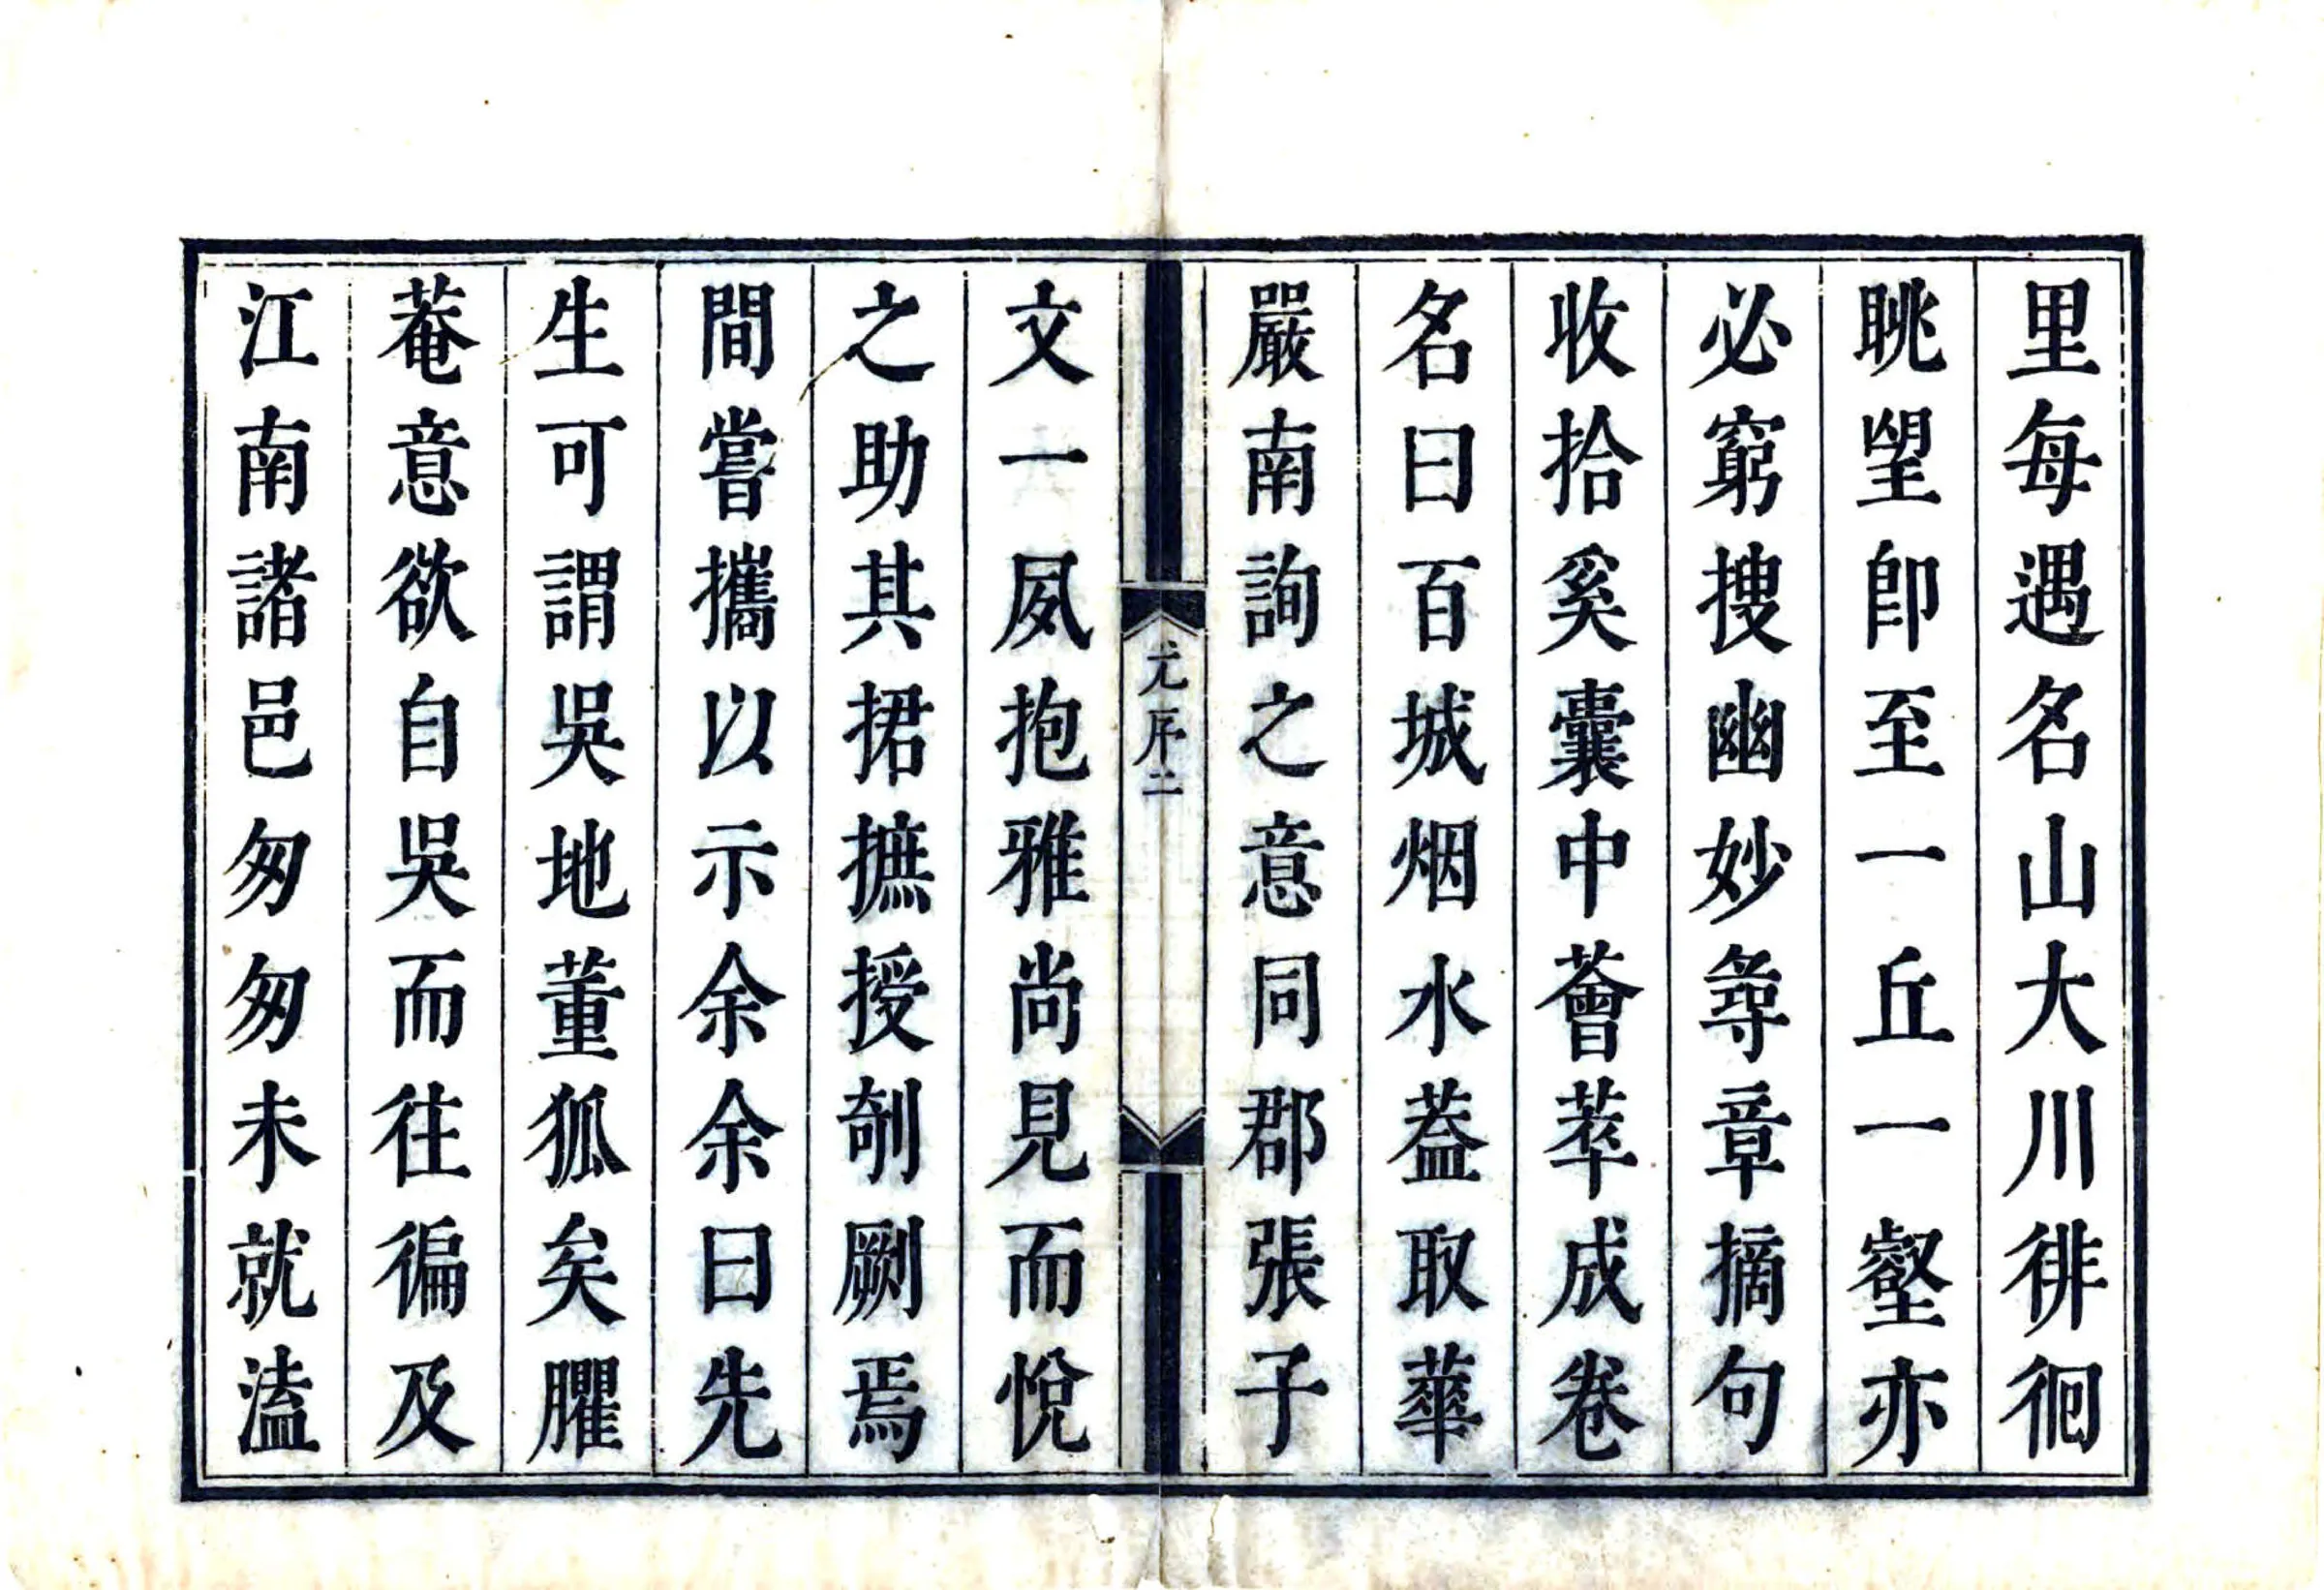 里每遇名山大川徘徊
眺望卽至一丘一壑亦
必窮搜幽妙尋章摘句
收拾奚囊中薈萃成卷
名曰百城烟水葢取華
嚴南詢之意同郡張子
尤序二
文一夙抱雅尚見而悅
之助其捃摭授剞劂焉
間嘗攜以示余余曰先
生可謂吳地董狐矣臞
菴意欲自吳而往徧及
江南諸邑匆匆未就溘